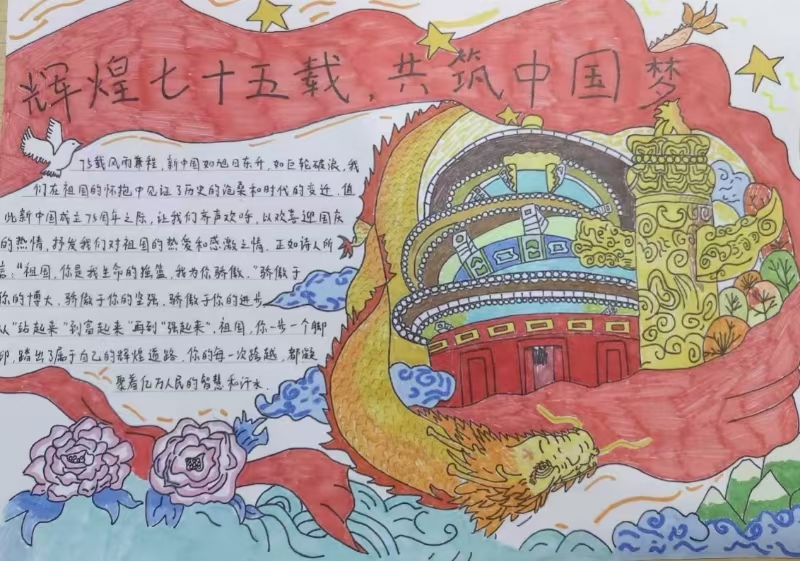 辉煌七十五载，共筑中国梦
75载风雨兼程，新中国如旭日东升，如巨轮破浪，我
们在祖国的怀抱中见证了历史的沧桑和时代的变迁，值
此新中国成立75周年之际，让我们齐声欢呼，以欢喜迎国庆
的热情，抒发我们对祖国的热爱和感激之情。正如诗人所
言："祖国，你是我生命的摇篮，我为你骄傲。"骄傲于
你的博大，骄傲于你的坚强，骄傲于你的进步。
从"站起来"到富起来"再到"强起来"，祖国，你一步一个脚
印，踏出了属于自己的辉煌道路，你的每一次跨越，都凝
聚着亿万人民的智慧和汗水。